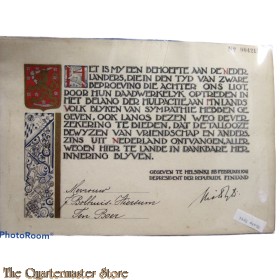 HET IS MY EEN BEHOEFTE AAN DE NEDER
LANDERS, DIE IN DEN TYD VAN ZWARE
BEPROEVING DIE ACHTER ONS LIGT,
DOOR HUN DAADWERKELYK OPTREDEN IN
HET BELANG DER HULPACTIE AAN MYN LANDS
VOLK BLYKEN VAN SYMPATHIE HEBBEN GE
GEVEN, OOK LANGS DEZEN WEG DE VER
ZEKERING TE BIEDEN, DAT DE TALLOOZE
BEWYZEN VAN VRIENDSCHAP EN ANDER
ZINS UIT NEDERLAND ONTVANGEN, ALLER
WEGEN HIER TE LANDE IN DANKBARE HER
INNERING BLYVEN.
GEGEVEN TE HELSINKI, FEBRUARI
PRESIDENT DER REPUBLIEK FINLAND
Mevrouw
Den Boer
PhotoRoom
The Quartermaster Store